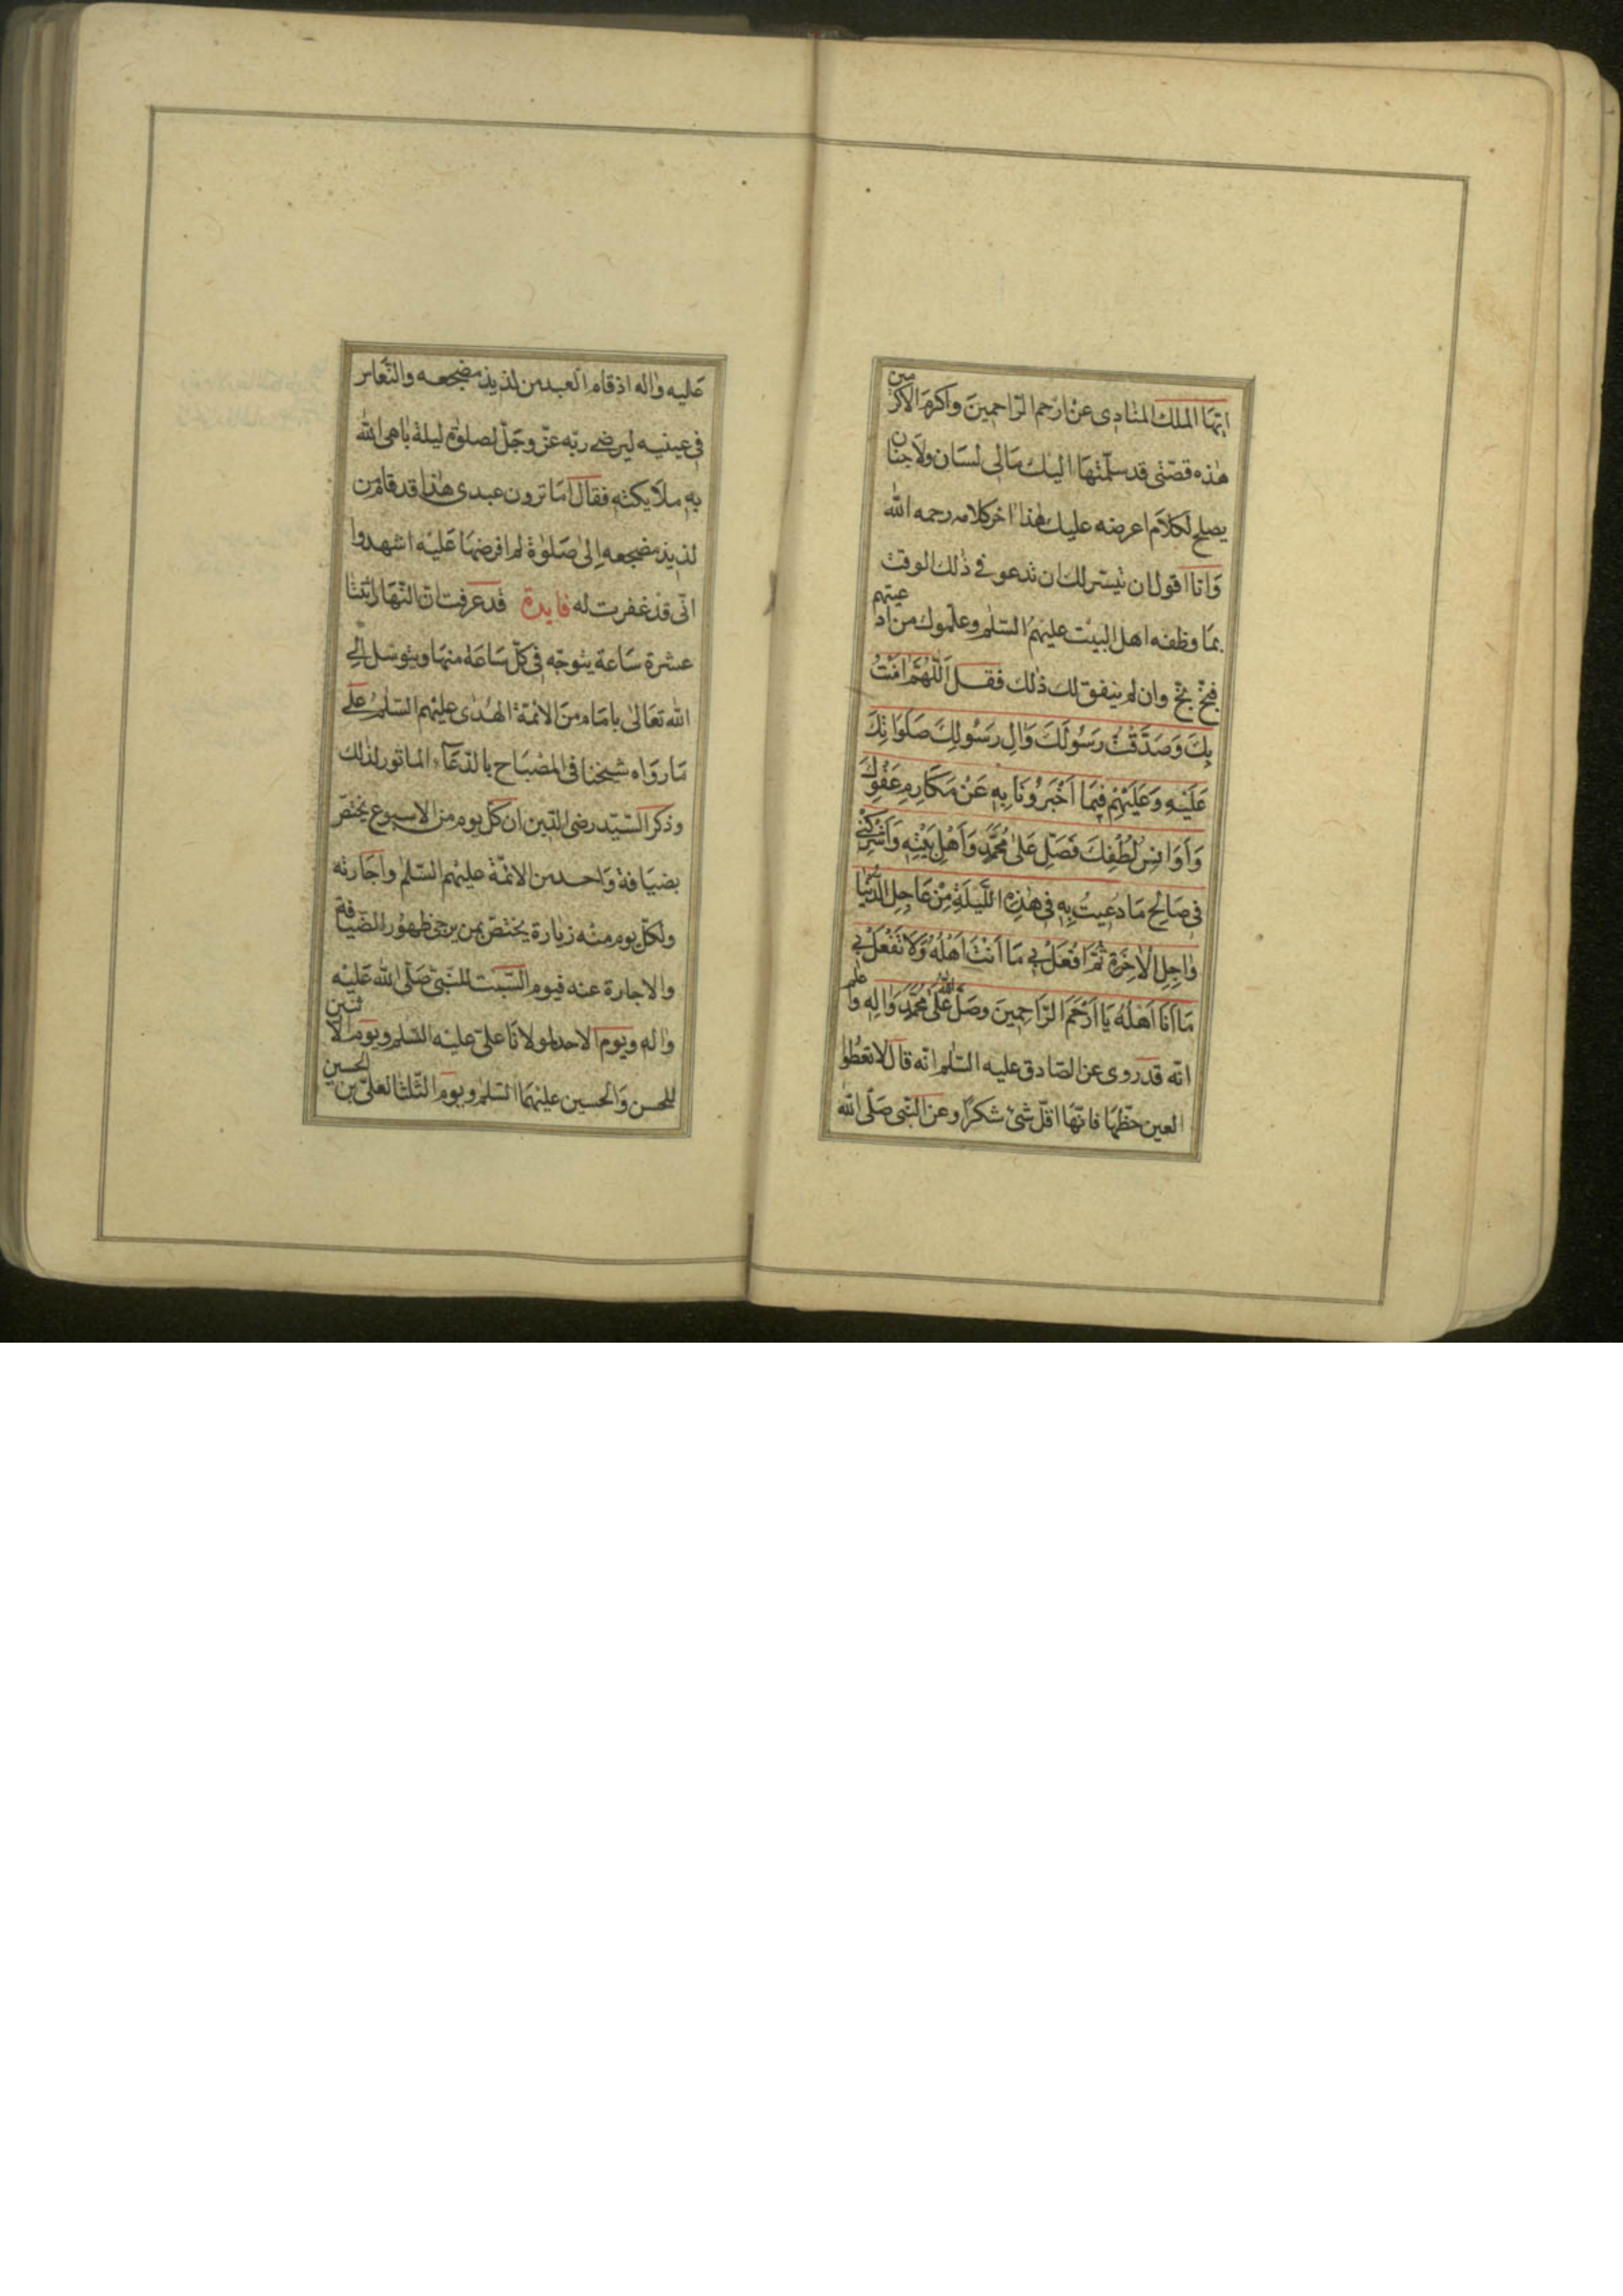 ايّها الملك المنادى عن ارحم الرّاحمين واكرم الاكرمين
هذه قصّتى قد سلّمتها اليك مالى لسان ولا جنان
يصلح لكلام اعرضه عليك هذا اخر كلامه رحمه الله
وانا اقول ان تيسّر لك ان تدعو فى ذلك الوقت
بما وظفه اهل البيت عليهم السّلم وعلّموك من ادعيتهم
فبخّ بخّ وان لم يتفق لك ذلك فقل اَللّهُمَّ امَنْتُ
بِكَ وَصَدَّقْتُ رَسُولَكَ وَالِ رَسُولِكَ صَلَوَاتِكَ
عَلَيْهِ وَعَلَيْهِمْ فِيمَا اَخْبَرُونَا بِهِ عَنْ مَكَارِمِ عَفْوِكَ
وَاَوَانِسِ لُطْفِكَ فَصَلِّ عَلى مُحَمَّدٍ وَاَهْلِ بَيْتِهِ وَاَشْرِكْنِى
فِى صَالِحِ مَا دُعِيتُ بِهِ فِى هذِهِ اللَّيْلَةِ مِنْ عَاجِلِ الدُّنْيَا
وَاجِلِ الْاخِرَةِ ثُمَّ افْعَلْ بِى مَا اَنْتَ اَهْلُهُ وَلَا تَفْعَلْ بِى
مَا اَنَا اَهْلُهُ يَا اَرْحَمَ الرَّاحِمِينَ وصَلَّى اللهُ عَلى مُحَمَّدٍ وَالِهِ واعلم
انّه قد روى عن الصّادق عليه السّلم انّه قال لا تعطوا
العين حظّها فانّها اقلّ شئ شكرًا وعن النّبى صلّى الله
عليه واله اذ قام العبد من لذيذ مضجعه والنّعاس
فى عينيه ليرضى ربّه عزّ وجلّ لصلوة ليلة باهى الله
به ملايكته فقال اما ترون عبدى هذا قد قام من
لذيذ مضجعه الى صلوة لم افرضها عليه اشهدوا
انّى قد غفرت له فايدة قد عرفت انّ النّهار اثنتا
عشرة ساعة يتوجّه فى كلّ ساعة منها ويتوسّل الى
الله تعالى بامام من الائمّة الهدى عليهم السّلم على
ما رواه شيخنا فى المصباح بالدّعاء الماثور لذلك
وذكر السّيّد رضى الدّين ان كلّ يوم من الاسبوع يختصّ
بضيافة واحد من الائمّة عليهم السّلم واجارته
ولكلّ يوم منه زيارة يختصّ بمن يرجى ظهور الضّيافة
والاجارة عنه فيوم السّبت للنّبىّ صلّى الله عليه
واله ويوم الاحد لمولانا علىّ عليه السّلم ويوم الاثنين
للحسن والحسين عليهما السّلم ويوم الثّلثا لعلىّ بن الحسين